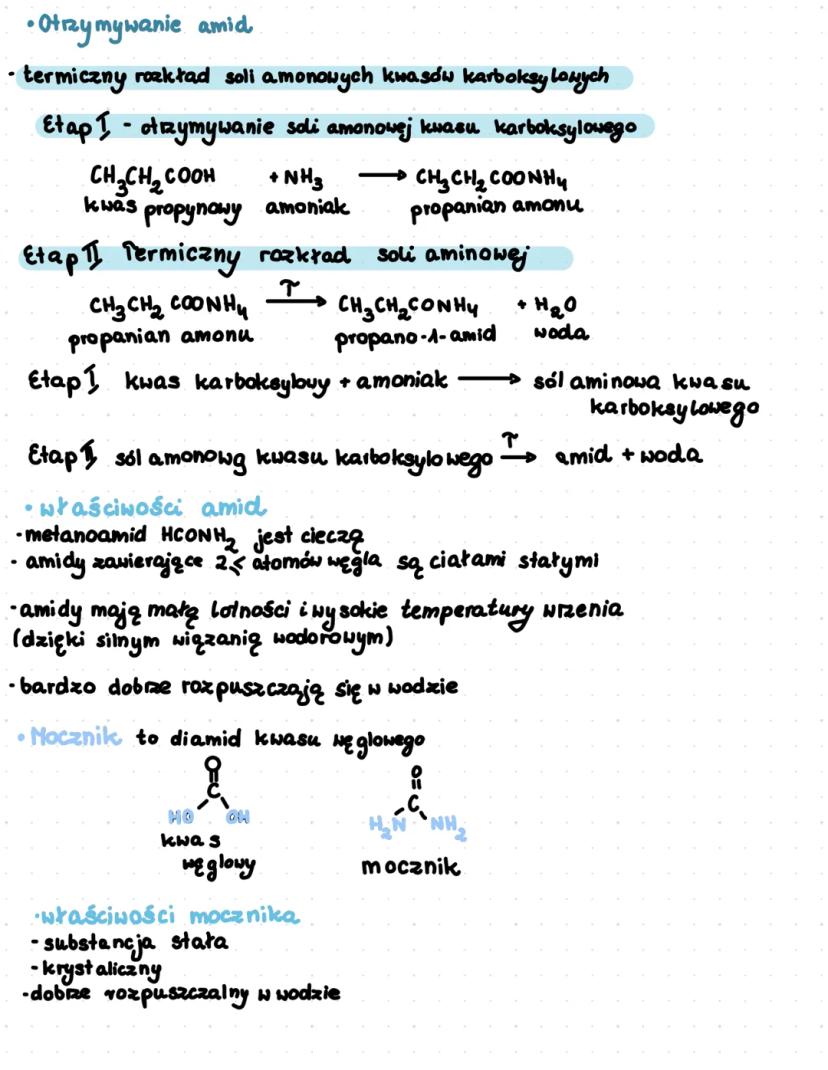 • Otrzymywanie amid
- termiczny rozkład soli amonowych kwasów karboksylowych
Etap I - otrzymywanie soli amonowej kwasu karboksylowego
CH₃CH₂COOH + NH₃ ⟶ CH₃CH₂COONH₄
kwas propynowy amoniak propanian amonu
Etap II Termiczny rozkład soli aminowej
T
CH₃CH₂COONH₄ ⟶ CH₃CH₂CONH₄ + H₂O
propanian amonu propano-1-amid woda
Etap I kwas karboksylowy + amoniak ⟶ sól aminowa kwasu
karboksylowego
Etap II sól amonową kwasu karboksylowego T⟶ amid + woda
• właściwości amid
- metanoamid HCONH₂ jest cieczą
- amidy zawierające 2≤ atomów węgla są ciałami stałymi
- amidy mają małą lotności i wysokie temperatury wrzenia
(dzięki silnym wiązanią wodorowym)
- bardzo dobrze rozpuszczają się w wodzie
• Mocznik to diamid kwasu węglowego
O O
C C
HO OH H₂N NH₂
kwas
węglowy mocznik
• właściwości mocznika
- substancja stała
- krystaliczny
- dobrze rozpuszczalny w wodzie